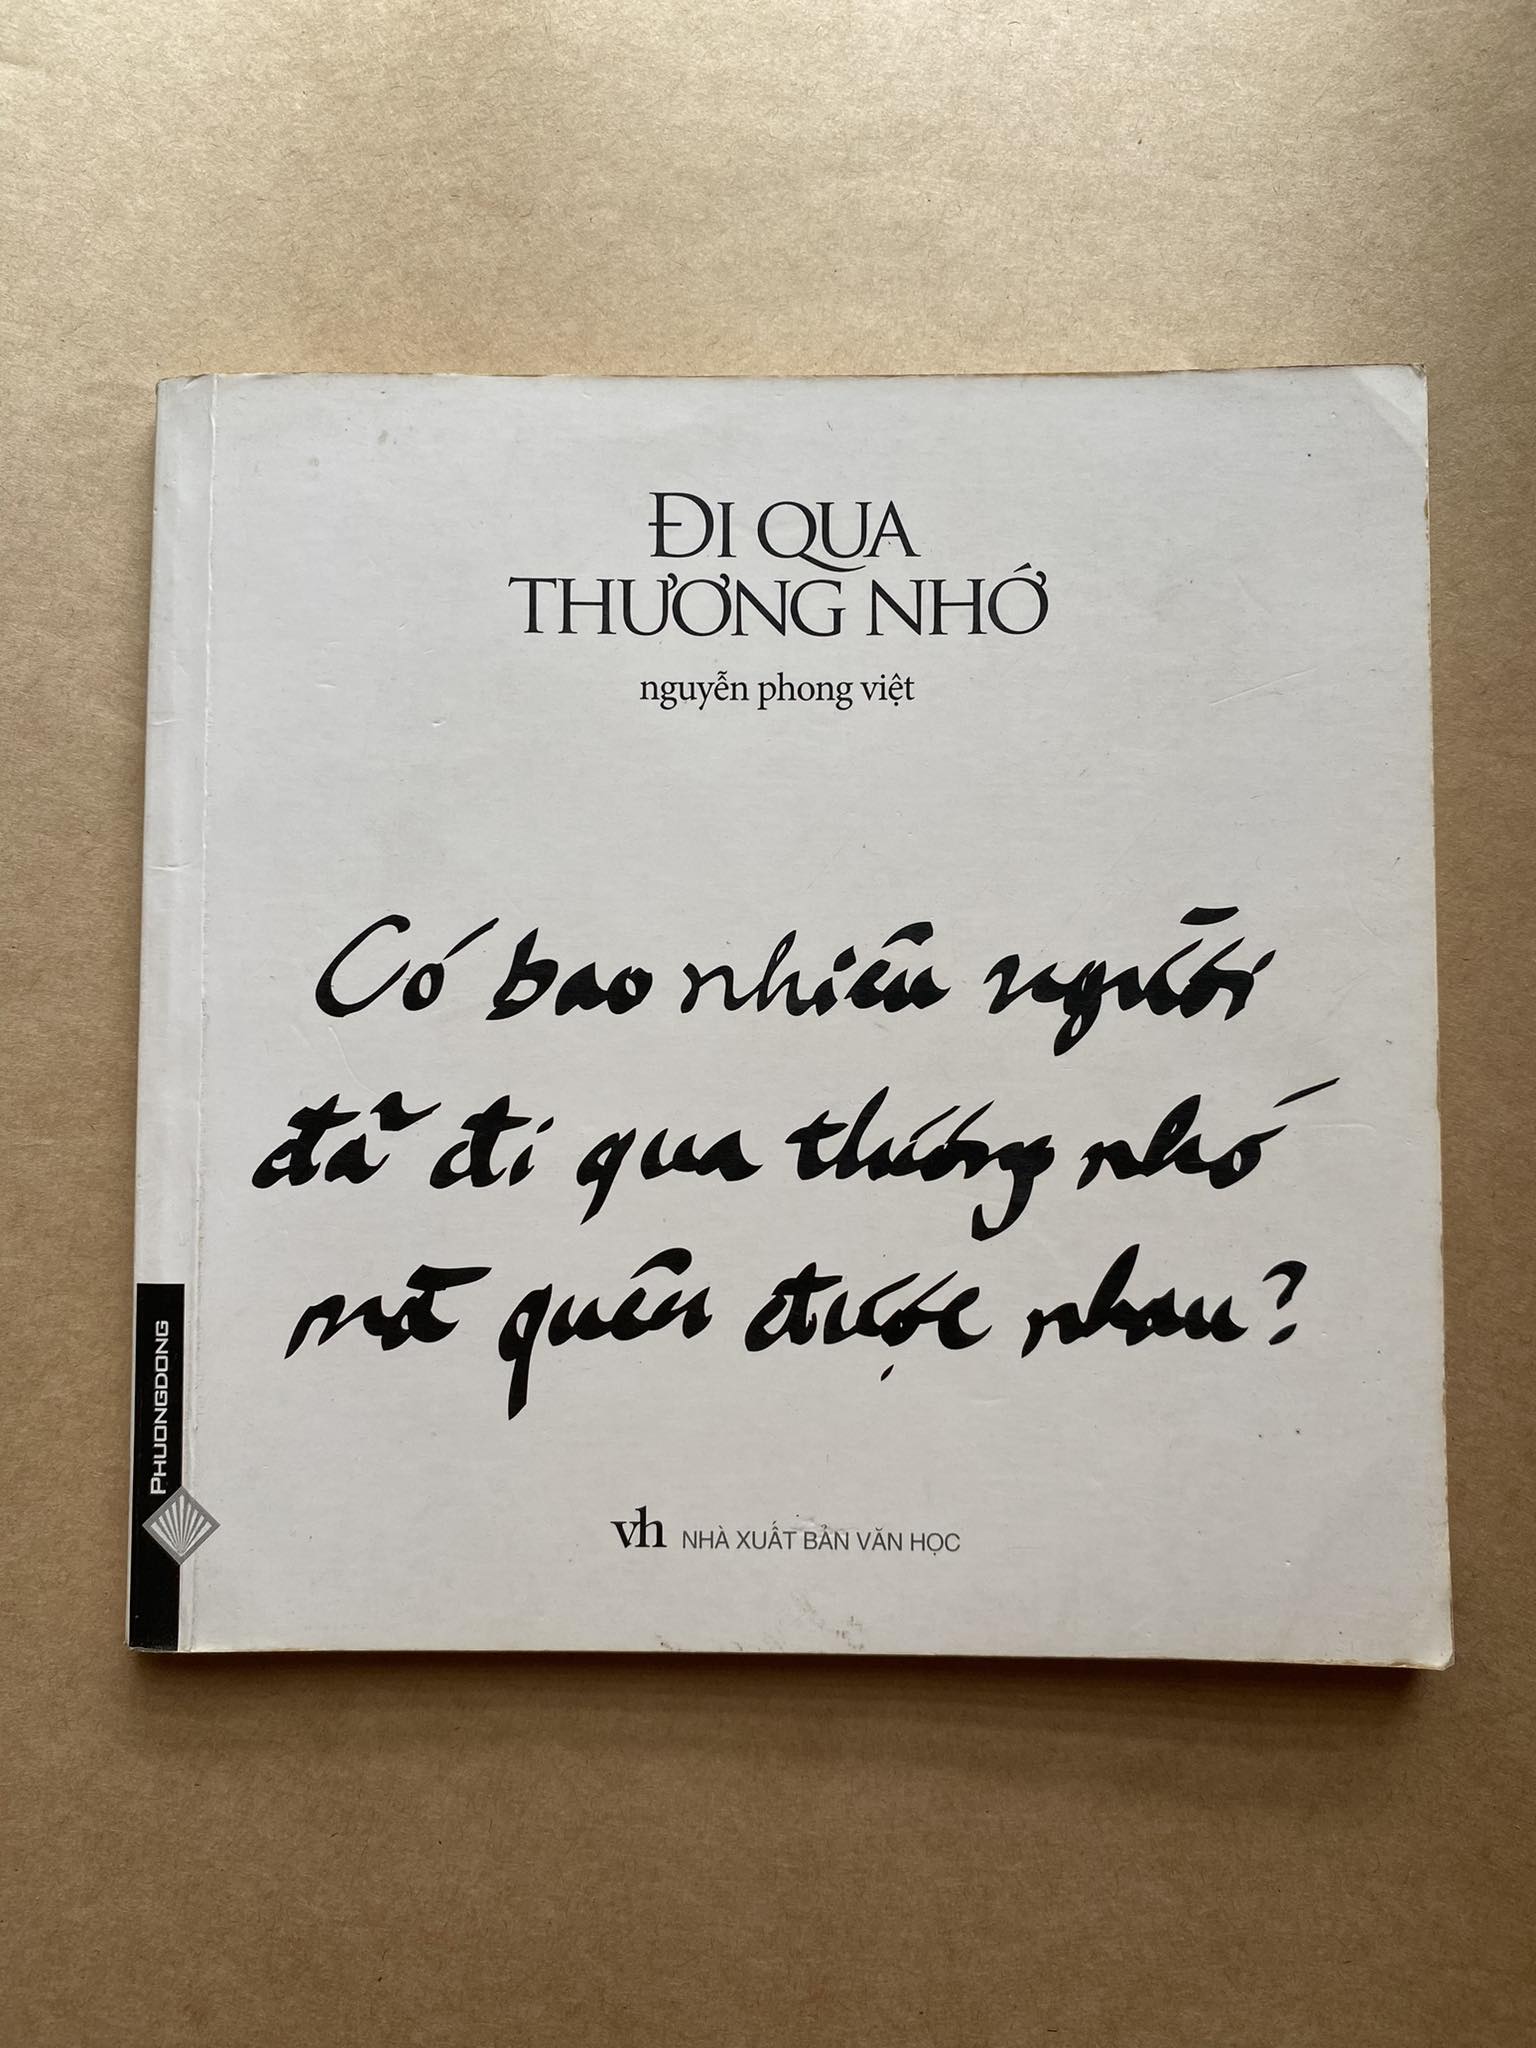 ĐI QUA
THƯƠNG NHỚ
nguyễn phong việt
Có bao nhiêu người
đã đi qua thương nhớ
mà quên được nhau?
PHUONGDONG
vh NHÀ XUẤT BẢN VĂN HỌC